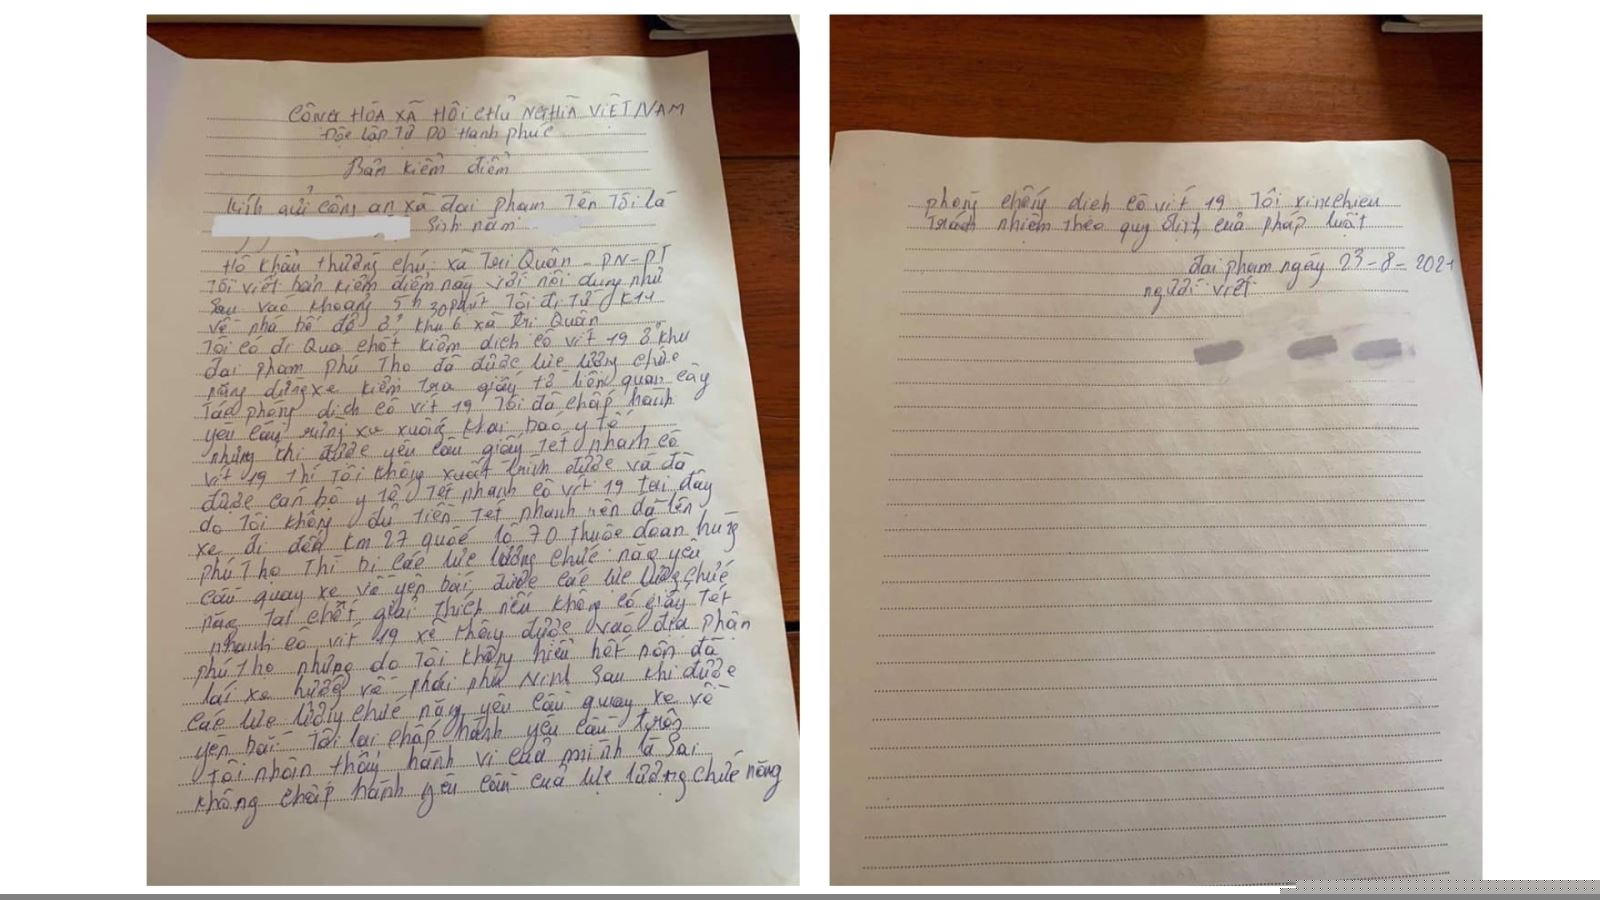 CÔNG HÒA XÃ HÔI CHỦ NGHĨA VIỆT NAM
Độc lập Tự Do Hạnh phúc
Bản kiểm điểm
kính gửi công an xã đại phạm Tên Tôi là
Sinh năm
Hô khẩu thường chú: xã Tri Quân - PN-PT
Tôi viết bản kiểm điểm này với nôi dung như
Sau vào khoảng 5h 30 phút Tôi đi Từ K14
về nhà bố đẻ ở khu 6 xã Tri Quân
Tôi có đi Qua chốt kiểm dich cô vit 19 ở khu
đai phạm phú Tho đã được lưc lương chức
năng dừng xe kiểm tra giấy tờ liên quan
phòng dich cô vit 19 Tôi đã chấp hành
yêu cầu xuống khai báo y tế
nhưng khi được yêu cầu giấy Tét nhanh cô
vit 19 thì Tôi không xuất trình được và đã
được cán bộ y tế Tét nhanh cô vit 19 tại đây
do Tôi không đủ tiền Tét nhanh nên đã lên
xe đi đến km 27 quốc lô 70 thuôc đoan hùng
phú Tho Thì bị các lưc lương chức năg yêu
cầu quay xe về yên bái, được các lưc lượg chức
năg tại chốt giải thích nếu không có giấy Tét
nhanh cô vit 19 xẽ không được vào địa phận
phú Tho nhưng do Tôi không hiểu hết nên đã
lái xe hướg về phái phù Ninh Sau khi được
các lưc lượng chức năng yêu cầu quay xe về
yên bái Tôi lại chấp hành yêu cầu
Tôi nhận thấy hành vi của mình là Sai
không chấp hành yêu cầu của lưc lượng chức năng
phòng chống dich cô vit 19 Tôi xin chiu
trách nhiệm theo quy định của pháp luật
đai phạm ngày 23-8-2021
người viết